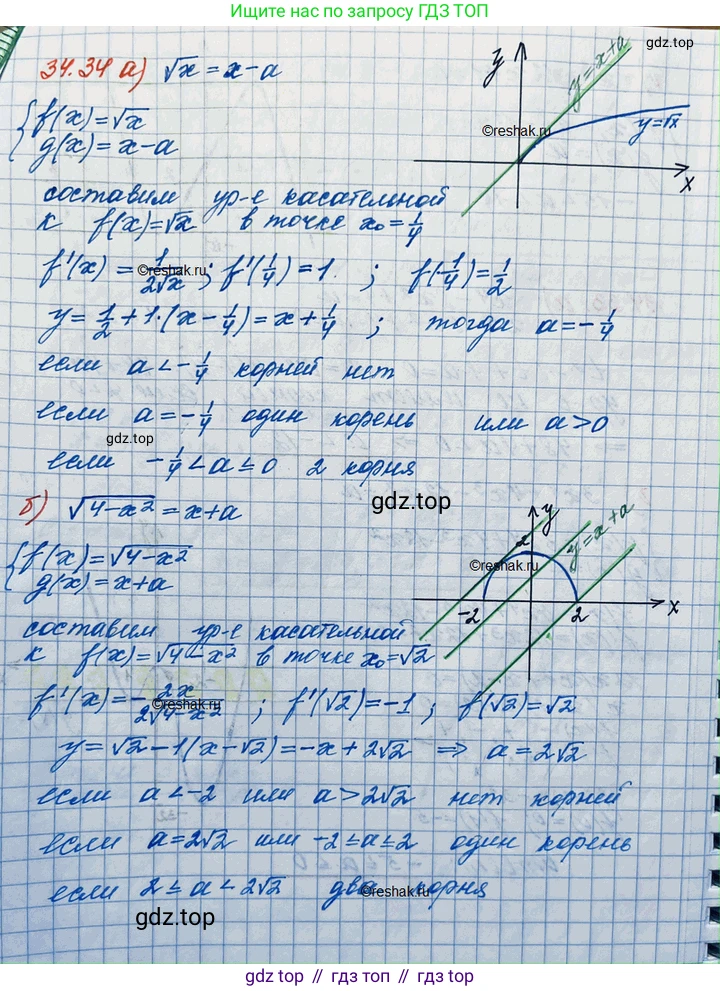 Ищите нас по запросу ГДЗ ТОП
34.34 а) √x = x-a
y
y=x+a
gdz.top
{f(x)=√x
g(x)=x-a
©reshak.ru
y=√x
x
составим ур-е касательной
к f(x)=√x в точке x₀=1/4
f'(x) = 1/(2√x) ; f'(1/4)=1 ; f(1/4)=1/2
©reshak.ru
y=1/2+1·(x-1/4)=x+1/4 ; тогда a=-1/4
если a<-1/4 корней нет
если a=-1/4 один корень или a>0
gdz.top
если -1/4<a≤0 2 корня
gdz.top
б) √(4-x²)=x+a
y
y=x+a
2
{f(x)=√(4-x²)
g(x)=x+a
©reshak.ru
-2
2
x
составим ур-е касательной
к f(x)=√(4-x²) в точке x₀=√2
f'(x)=-2x/(2√(4-x²)) ; f'(√2)=-1 ; f(√2)=√2
©reshak.ru
y=√2-1(x-√2)=-x+2√2 ⇒ a=2√2
если a<-2 или a>2√2 нет корней
если a=2√2 или -2≤a≤2 один корень
если 2≤a<2√2 два корня
©reshak.ru
gdz.top
gdz.top
gdz.top // гдз топ // гдз.top